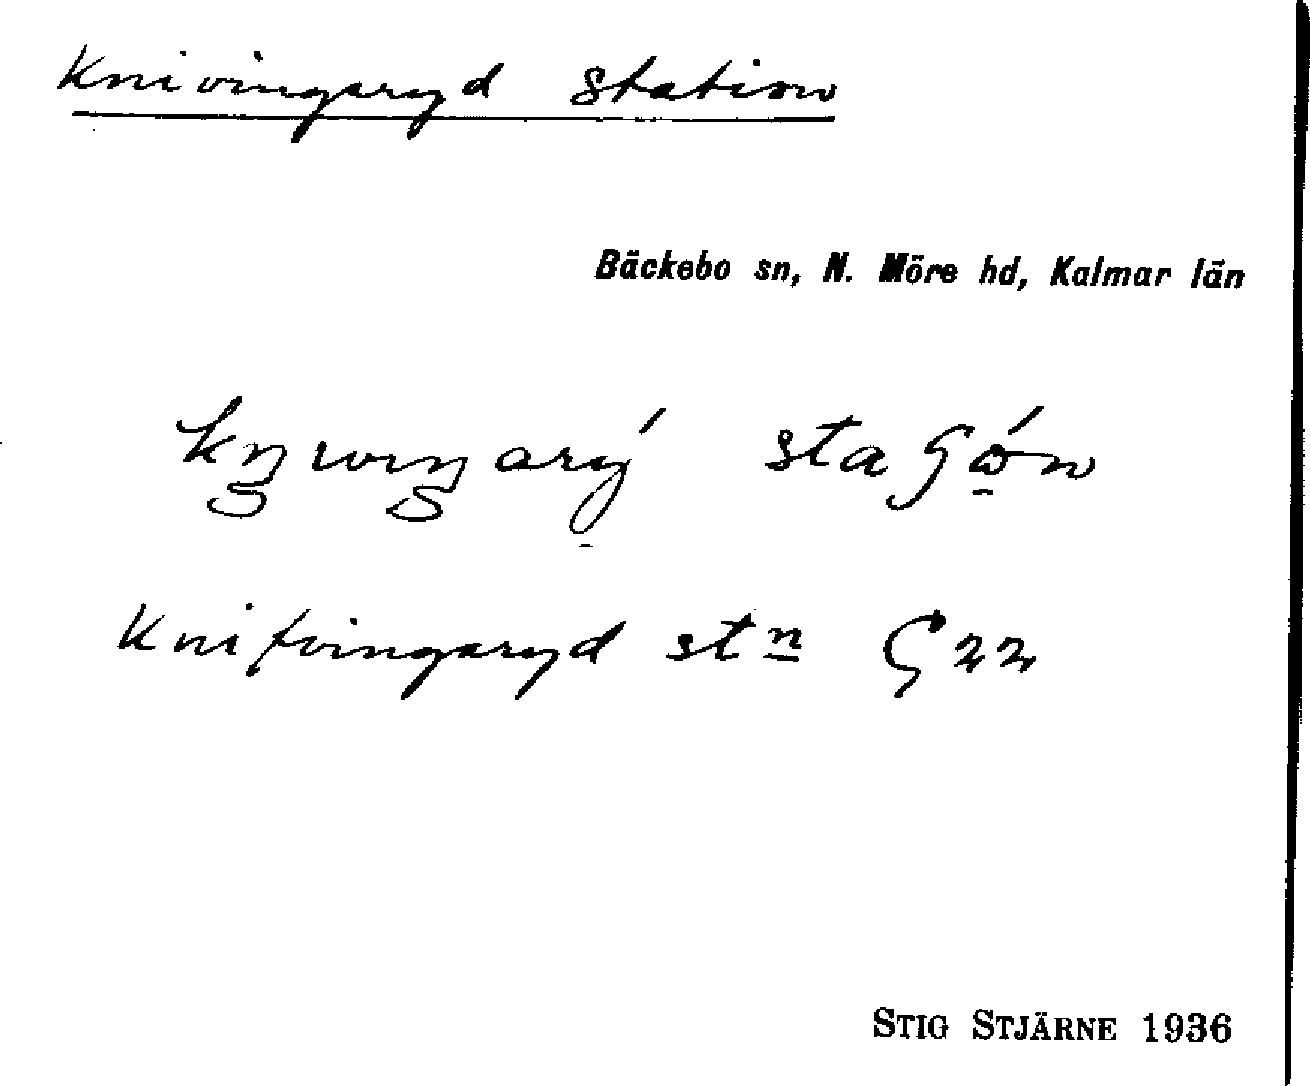 Knivingaryd station
Bäckebo sn, N. Möre hd, Kalmar län
Knifvingaryd stn G 22
STIG STJÄRNE 1936